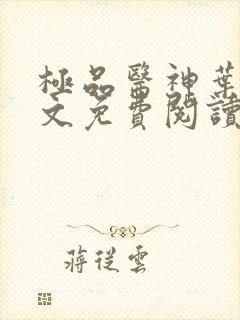 極品醫神葉
文免費閱讀
蔣從雲